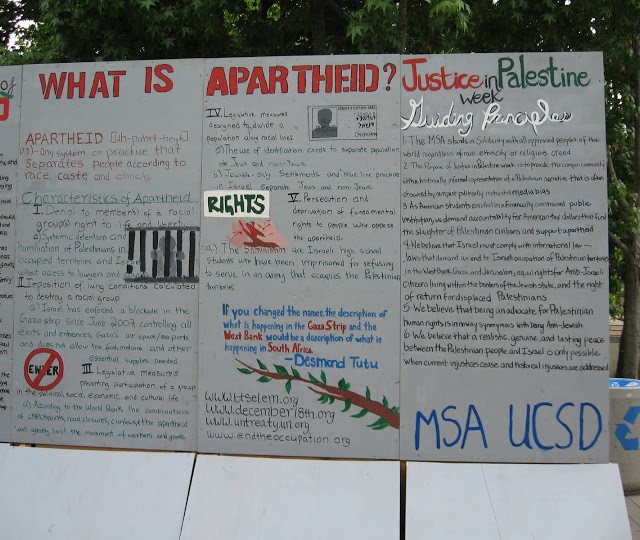 WHAT IS
APARTHEID [uh-pahrt-heyt]
any system or practice that
separates people according to
race, caste and ethnicity.
Characteristics of Apartheid
I. Denial to member(s) of a racial
group(s) right to life and liberty
a) Systemic detention and
humiliation of Palestinians in
occupied territories and
access to lawyers and
II. Imposition of living conditions calculated
to destroy a racial group.
a) Israel has enforced a blockade in the
Gaza strip since June 2007, controlling all
exits and entrances, Gaza's air space/sea ports
and does not allow the food, medicine and other
essential supplies needed.
ENTER
III. Legislative measures
preventing participation of a group
in the political, social, economic, and cultural life.
a) According to the World Bank, the combinations
of checkpoints, road closures, curfews, & the apartheid
wall greatly limit the movement of workers and goods.
APARTHEID?
IV. Legislative measures
designed to divide a
population along racial lines
a) The use of identification cards to separate population
into Jews and non-Jews.
b) Jewish-only settlements and
in Israel separate Jews and non-Jews.
RIGHTS
V. Persecution and
deprivation of fundamental
rights to people who oppose
the apartheid.
a) The Shministim are Israeli high school
students who have been imprisoned for refusing
to serve in an army that occupies the Palestinian
territories.
If you changed the names, the description of
what is happening in the Gaza Strip and the
West Bank would be a description of what is
happening in South Africa.
-Desmond Tutu
www.btselem.org
www.december18th.org
www.untreaty.un.org
www.endtheoccupation.org
Justice in Palestine
week
Guiding Principles
1. The MSA stands in solidarity with all oppressed peoples of the
world regardless of race, ethnicity or religious creed
2. The Purpose of Justice in Palestine week is to provide the campus community
with a historically informed representation of a Palestinian narrative that is often
obscured by ignorant politically motivated media bias
3. As American students enrolled in a financially contrained public
institution, we demand accountability for American tax dollars that fund
the slaughter of Palestinian civilians and support apartheid
4. We believe that Israel must comply with international law-
laws that demand an end to Israeli occupation of Palestinian territories
in the West Bank, Gaza, and Jerusalem, equal rights for Arab-Israeli
citizens living within the borders of the Jewish state, and the right
of return for displaced Palestinians
5. We believe that being an advocate for Palestinian
human rights is in no way synonymous with being Anti-Jewish
6. We believe that a realistic, genuine, and lasting peace
between the Palestinian people and Israel is only possible
when current injustices cease and historical injustices are addressed
MSA UCSD